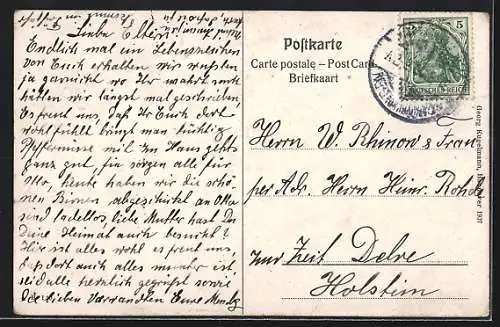 Liebe Eltern!
Endlich mal ein Lebenszeichen
von Euch erhalten wir wußten
ja garnicht wo Ihr wahrt sonst
hätten wir längst mal geschrieben,
Es freut uns, daß Ihr Euch dort
wohl fühlt bringt man tüchtig
Pfeffernüsse mit im Haus gehts
ganz gut, sie sorgen alle für
Otto, heute haben wir die schö-
nen Birnen abgeschickt an Otto
sind tadellos, liebe Mutter hast Du
Deine Heimat auch besucht?
Hier ist alles wohl es freut uns,
daß dort auch alles munter ist,
seid alle herzlich gegrüßt sowie
die lieben Verwandten Eure
Postkarte
Carte postale – Post Card
Briefkaart
5
DEUTSCHES REICH
Herrn W. Rhinow & Frau
per Adr. Herrn Heinr. Rohde
zur Zeit Delve
Holstein
Georg Kugelmann, 1937